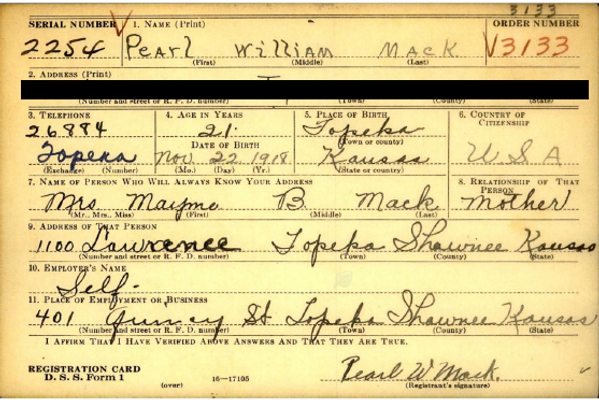 3133
SERIAL NUMBER 1. NAME (Print) ORDER NUMBER
2254 Pearl William Mack V3133
(First) (Middle) (Last)
2. ADDRESS (Print)
(Number and street or R. F. D. number) (Town) (County) (State)
3. TELEPHONE 4. AGE IN YEARS 5. PLACE OF BIRTH 6. COUNTRY OF CITIZENSHIP
26884 21 Topeka
DATE OF BIRTH (Town or county)
Topeka Nov. 22 1918 Kansas U S A
(Exchange) (Number) (Mo.) (Day) (Yr.) (State or country)
7. NAME OF PERSON WHO WILL ALWAYS KNOW YOUR ADDRESS 8. RELATIONSHIP OF THAT PERSON
Mrs Mayme B. Mack Mother
(Mr., Mrs., Miss) (First) (Middle) (Last)
9. ADDRESS OF THAT PERSON
1100 Lawrence Topeka Shawnee Kansas
(Number and street or R. F. D. number) (Town) (County) (State)
10. EMPLOYER'S NAME
Self.
11. PLACE OF EMPLOYMENT OR BUSINESS
401 St Topeka Shawnee Kansas
(Number and street or R. F. D. number) (Town) (County) (State)
I AFFIRM THAT I HAVE VERIFIED ABOVE ANSWERS AND THAT THEY ARE TRUE.
REGISTRATION CARD
D. S. S. Form 1 (over) 16—17105
Pearl W Mack.
(Registrant's signature)